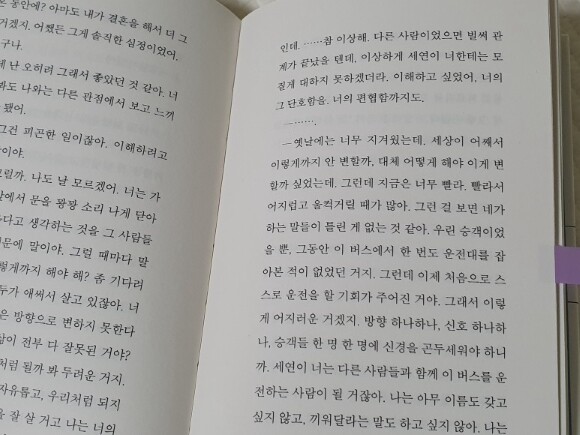 은 동안에? 아마도 내가 결혼을 해서 더 그
겠지. 어쨌든 그게 솔직한 심정이었어.
구나.
데 난 오히려 그래서 좋았던 것 같아. 너
봐도 나와는 다른 관점에서 보고 느끼
됐어.
그건 피곤한 일이잖아. 이해하려고
이야.
럴까. 나도 날 모르겠어. 너는 가
앞에서 문을 쾅쾅 소리 나게 닫아
다고 생각하는 것을 그 사람들
문에 말이야. 그럴 때마다 말
렇게까지 해야 해? 좀 기다려
두가 애써서 살고 있잖아. 너
은 방향으로 변하지 못한다
삶이 전부 다 잘못된 거야?
처럼 될까 봐 두려운 거지.
자유롭고, 우리처럼 되지
을 잘 살 거고 나는 너의
인데. ……참 이상해. 다른 사람이었으면 벌써 관
계가 끝났을 텐데. 이상하게 세연이 너한테는 모
질게 대하지 못하겠더라. 이해하고 싶었어. 너의
그 단호함을. 너의 편협함까지도.
―…….
―옛날에는 너무 지겨웠는데. 세상이 어째서
이렇게까지 안 변할까, 대체 어떻게 해야 이게 변
할까 싶었는데. 그런데 지금은 너무 빨라. 빨라서
어지럽고 울컥거릴 때가 많아. 그런 걸 보면 네가
하는 말들이 틀린 게 없는 것 같아. 우린 승객이었
을 뿐, 그동안 이 버스에서 한 번도 운전대를 잡
아본 적이 없었던 거지. 그런데 이제 처음으로 스
스로 운전을 할 기회가 주어진 거야. 그래서 이렇
게 어지러운 거겠지. 방향 하나하나, 신호 하나하
나, 승객들 한 명 한 명에 신경을 곤두세워야 하니
까. 세연이 너는 다른 사람들과 함께 이 버스를 운
전하는 사람이 될 거잖아. 나는 아무 이름도 갖고
싶지 않고, 끼워달라는 말도 하고 싶지 않아. 나는